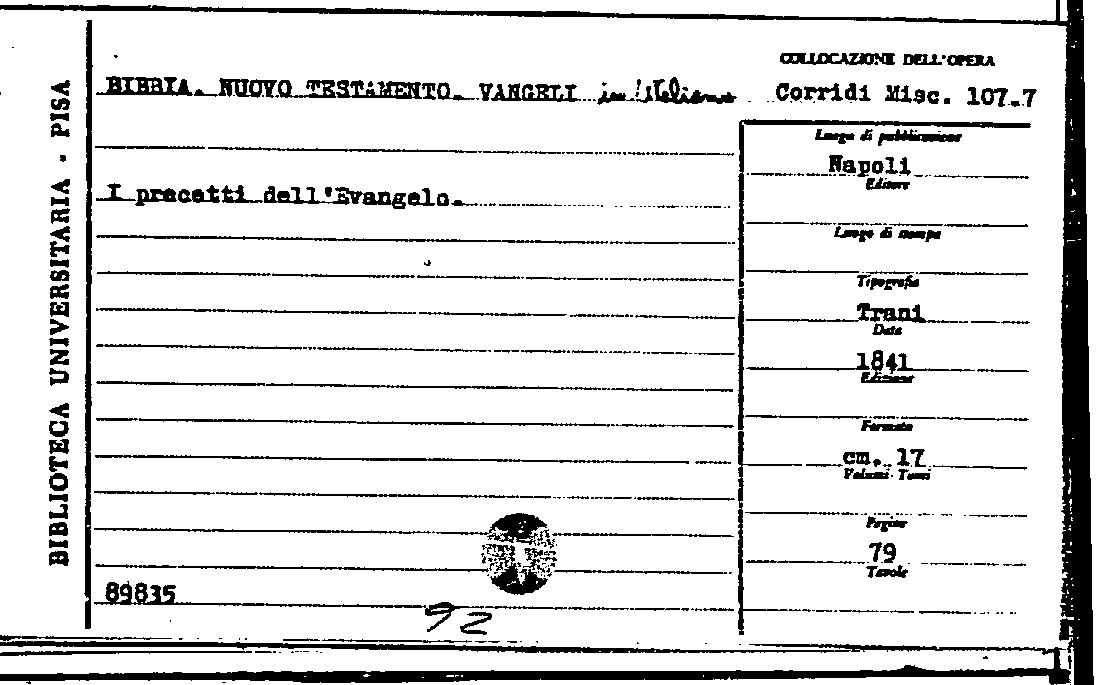 BIBLIOTECA UNIVERSITARIA - PISA
COLLOCAZIONE DELL'OPERA
BIBBIA. NUOVO TESTAMENTO. VANGELI in Italiano
Corridi Misc. 107.7
I precetti dell'Evangelo.
Luogo di pubblicazione
Napoli
Editore
Luogo di stampa
Tipografia
Trani
Data
1841
Edizione
Formato
cm. 17
Volumi - Tomi
Pagine
79
Tavole
89835
92